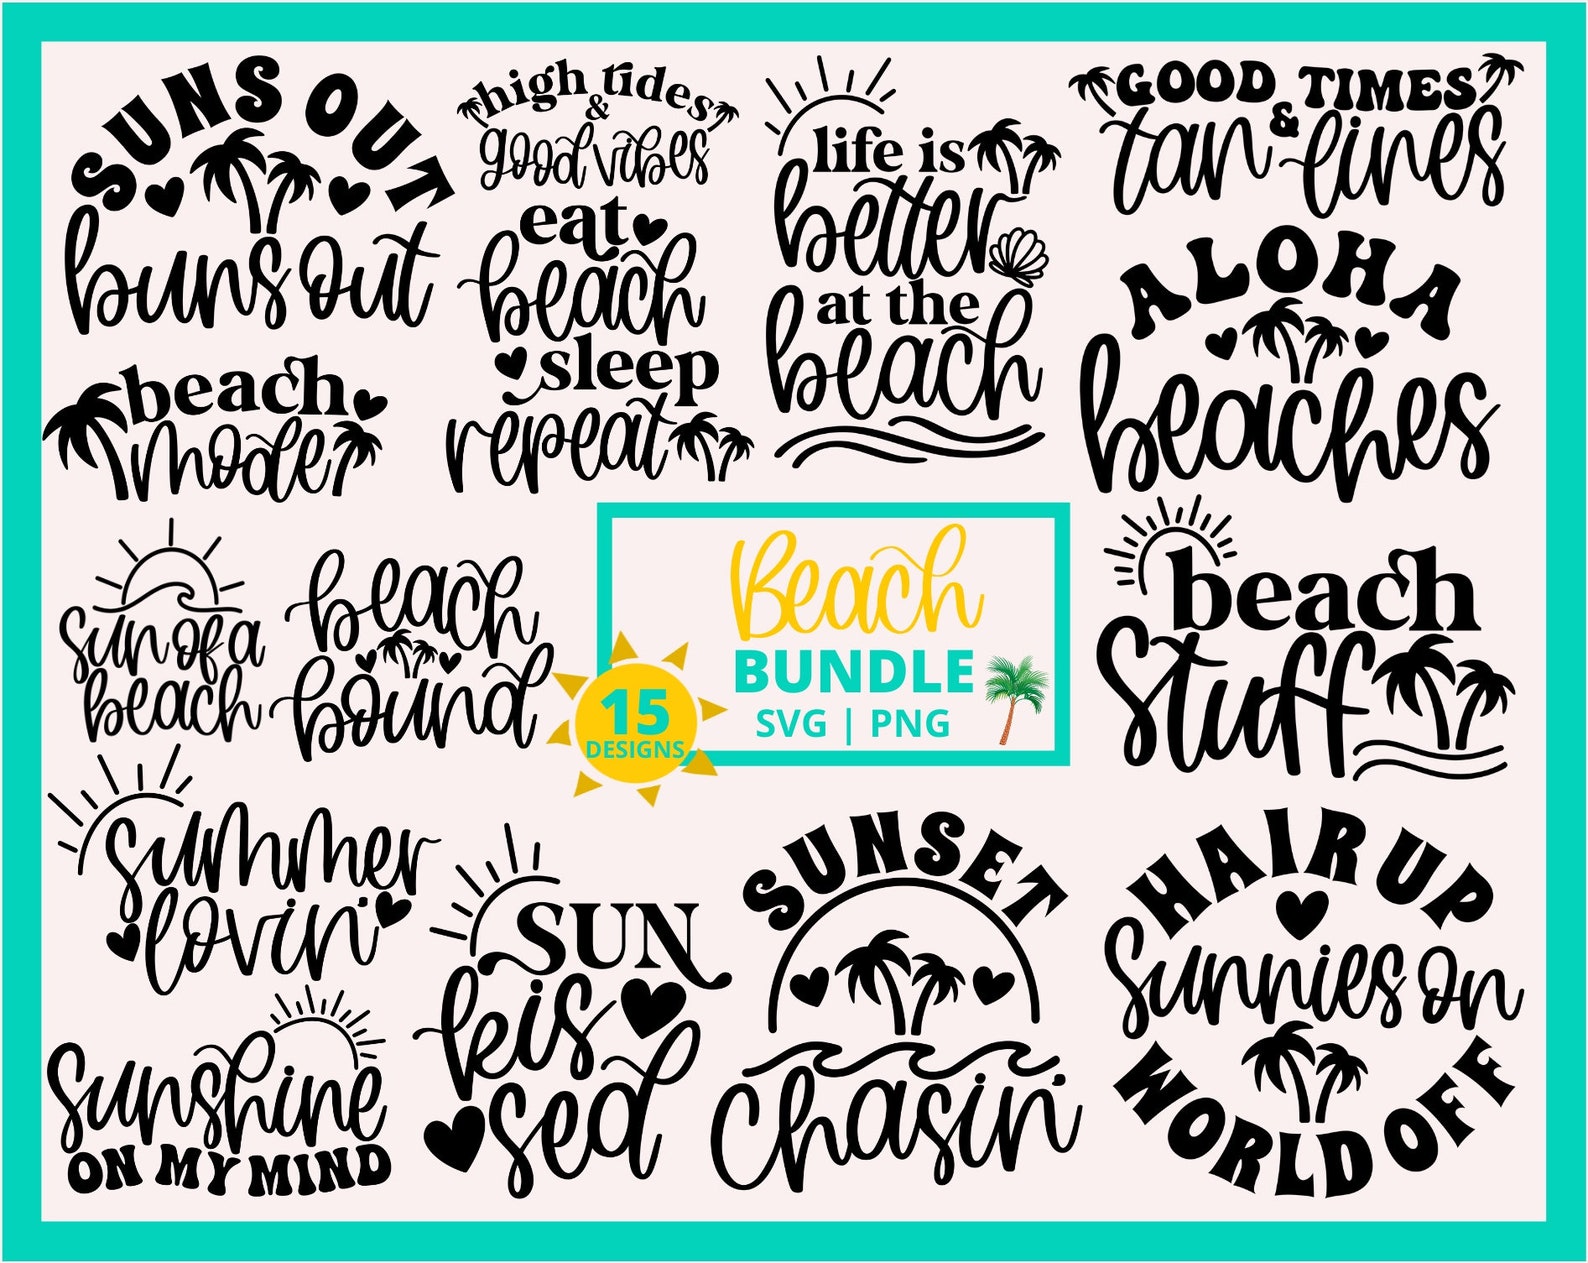 SUNS OUT
buns out
high tides
&
good vibes
eat
beach
sleep
repeat
life is
better
at the
beach
GOOD TIMES
&
tan lines
ALOHA
beaches
beach
mode
sun of a
beach
beach
bound
Beach
BUNDLE
SVG | PNG
15
DESIGNS
beach
Stuff
summer
lovin'
SUN
kis
sed
SUNSET
chasin'
HAIR UP
Sunnies on
WORLD OFF
sunshine
ON MY MIND